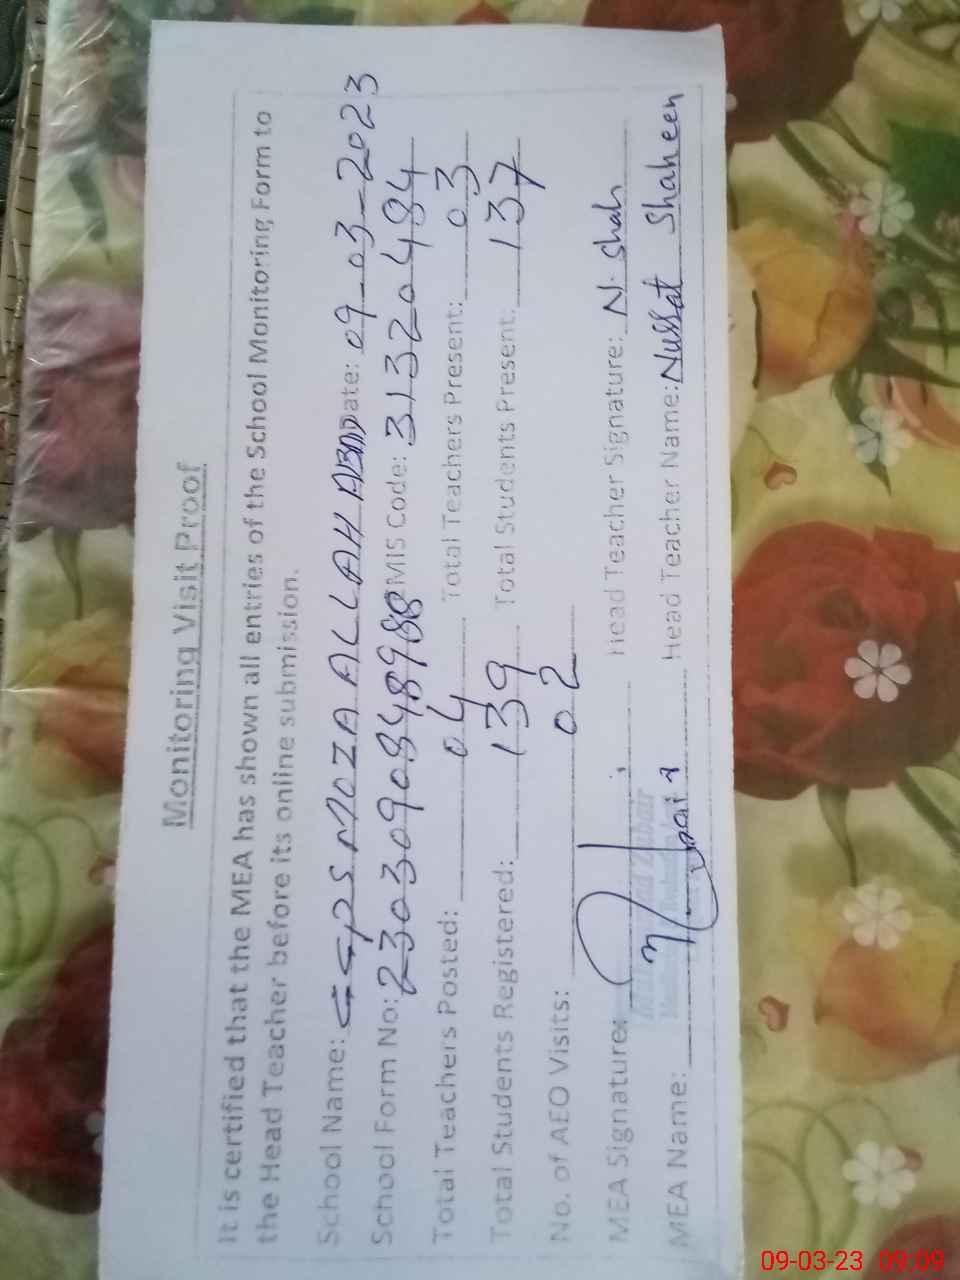 Monitoring Visit Proof
It is certified that the MEA has shown all entries of the School Monitoring Form to
the Head Teacher before its online submission.
School Name: GGPS MOZA ALLAH ABAD Date: 09-03-2023
School Form No: EMIS Code: 31320484
Total Teachers Posted: 04 Total Teachers Present: 03
Total Students Registered: 139 Total Students Present: 137
No. of AEO Visits: 02
MEA Signature: Head Teacher Signature: N. Shah
MEA Name: Head Teacher Name: Nussat Shaheen
09-03-23 09:09